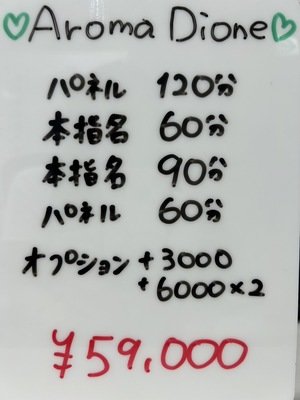 ♡Aroma Dione♡
パネル 120分
本指名 60分
本指名 90分
パネル 60分
オプション +3000
+6000×2
¥59,000